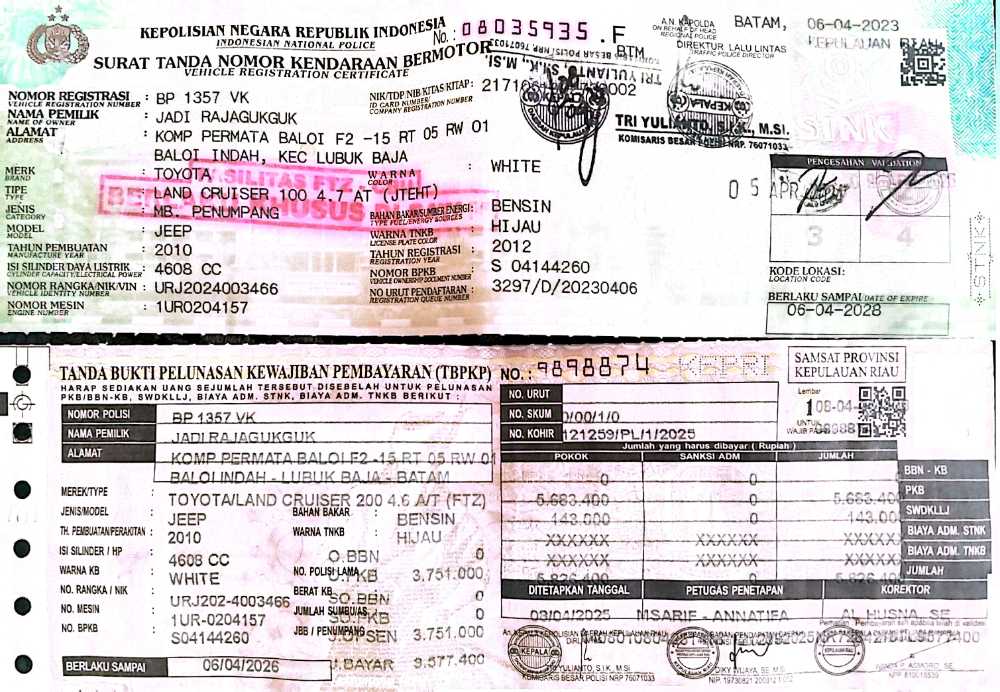 KEPOLISIAN NEGARA REPUBLIK INDONESIA
INDONESIAN NATIONAL POLICE
SURAT TANDA NOMOR KENDARAAN BERMOTOR
VEHICLE REGISTRATION CERTIFICATE
No. : 08035935 .F
BTM
A.N. KAPOLDA
ON BEHALF OF HEAD
REGIONAL POLICE
DIREKTUR LALU LINTAS
TRAFFIC POLICE DIRECTOR
BATAM, 06-04-2023
KEPULAUAN
TRI YULIANTO, S.I.K., M.SI.
KOMISARIS BESAR POLISI NRP. 76071033
NOMOR REGISTRASI : BP 1357 VK
VEHICLE REGISTRATION NUMBER
NIK/TDP/NIB/KITAS/KITAP :
ID CARD NUMBER/
COMPANY REGISTRATION NUMBER
NAMA PEMILIK : JADI RAJAGUKGUK
NAME OF OWNER
ALAMAT : KOMP PERMATA BALOI F2 -15 RT 05 RW 01
ADDRESS
BALOI INDAH, KEC LUBUK BAJA
MERK : TOYOTA
BRAND
TIPE : LAND CRUISER 100 4.7 AT (JTEHT)
TYPE
JENIS : MB. PENUMPANG
CATEGORY
MODEL : JEEP
MODEL
TAHUN PEMBUATAN : 2010
MANUFACTURE YEAR
ISI SILINDER/DAYA LISTRIK : 4608 CC
CYLINDER CAPACITY/ELECTRICAL POWER
NOMOR RANGKA/NIK/VIN : URJ2024003466
VEHICLE IDENTITY NUMBER
NOMOR MESIN : 1UR0204157
ENGINE NUMBER
WARNA : WHITE
COLOR
BAHAN BAKAR/SUMBER ENERGI : BENSIN
TYPE FUEL/ENERGY SOURCES
WARNA TNKB : HIJAU
LICENSE PLATE COLOR
TAHUN REGISTRASI : 2012
REGISTRATION YEAR
NOMOR BPKB : S 04144260
VEHICLE OWNERSHIP DOCUMENT NUMBER
NO URUT PENDAFTARAN : 3297/D/20230406
REGISTRATION QUEUE NUMBER
05 APR
PENGESAHAN VALIDATION
3
4
KODE LOKASI:
LOCATION CODE
BERLAKU SAMPAI DATE OF EXPIRE
06-04-2028
STNK
TANDA BUKTI PELUNASAN KEWAJIBAN PEMBAYARAN (TBPKP)
HARAP SEDIAKAN UANG SEJUMLAH TERSEBUT DISEBELAH UNTUK PELUNASAN
PKB/BBN-KB, SWDKLLJ, BIAYA ADM. STNK, BIAYA ADM. TNKB BERIKUT :
NO. : 9898874 KEPRI
SAMSAT PROVINSI
KEPULAUAN RIAU
Lembar
1
UNTUK
WAJIB PAJAK
NOMOR POLISI BP 1357 VK
NAMA PEMILIK JADI RAJAGUKGUK
ALAMAT KOMP PERMATA BALOI F2 -15 RT 05 RW 01
BALOI INDAH - LUBUK BAJA - BATAM
MEREK/TYPE : TOYOTA/LAND CRUISER 200 4.6 A/T (FTZ)
JENIS/MODEL : JEEP
BAHAN BAKAR : BENSIN
TH. PEMBUATAN/PERAKITAN : 2010
WARNA TNKB : HIJAU
ISI SILINDER / HP : 4608 CC
WARNA KB : WHITE
NO. RANGKA / NIK : URJ202-4003466
NO. MESIN : 1UR-0204157
NO. BPKB : S04144260
O.BBN 0
NO. POLISI LAMA
O.PKB 3,751.000
BERAT KB
SO.BBN 0
JUMLAH SUMBU/AS
SO.PKB 0
JBB / PENUMPANG
O.OPSEN 3,751.000
U.BAYAR 9,577.400
BERLAKU SAMPAI 06/04/2026
NO. URUT
NO. SKUM 0/00/1/0
NO. KOHIR 121259/PL/1/2025
Jumlah yang harus dibayar ( Rupiah )
POKOK SANKSI ADM JUMLAH
0 0 0 BBN - KB
5,683.400 0 5,683.400 PKB
143.000 0 143.000 SWDKLLJ
XXXXXX XXXXXX XXXXXX BIAYA ADM. STNK
XXXXXX XXXXXX XXXXXX BIAYA ADM. TNKB
5,826.400 0 5,826.400 JUMLAH
DITETAPKAN TANGGAL PETUGAS PENETAPAN KOREKTOR
03/04/2025 MSARIE - ANNATIFA AL HUSNA, SE
KEPALA
TRI YULIANTO, S.I.K, M.SI
KOMISARIS BESAR POLISI NRP 76071033